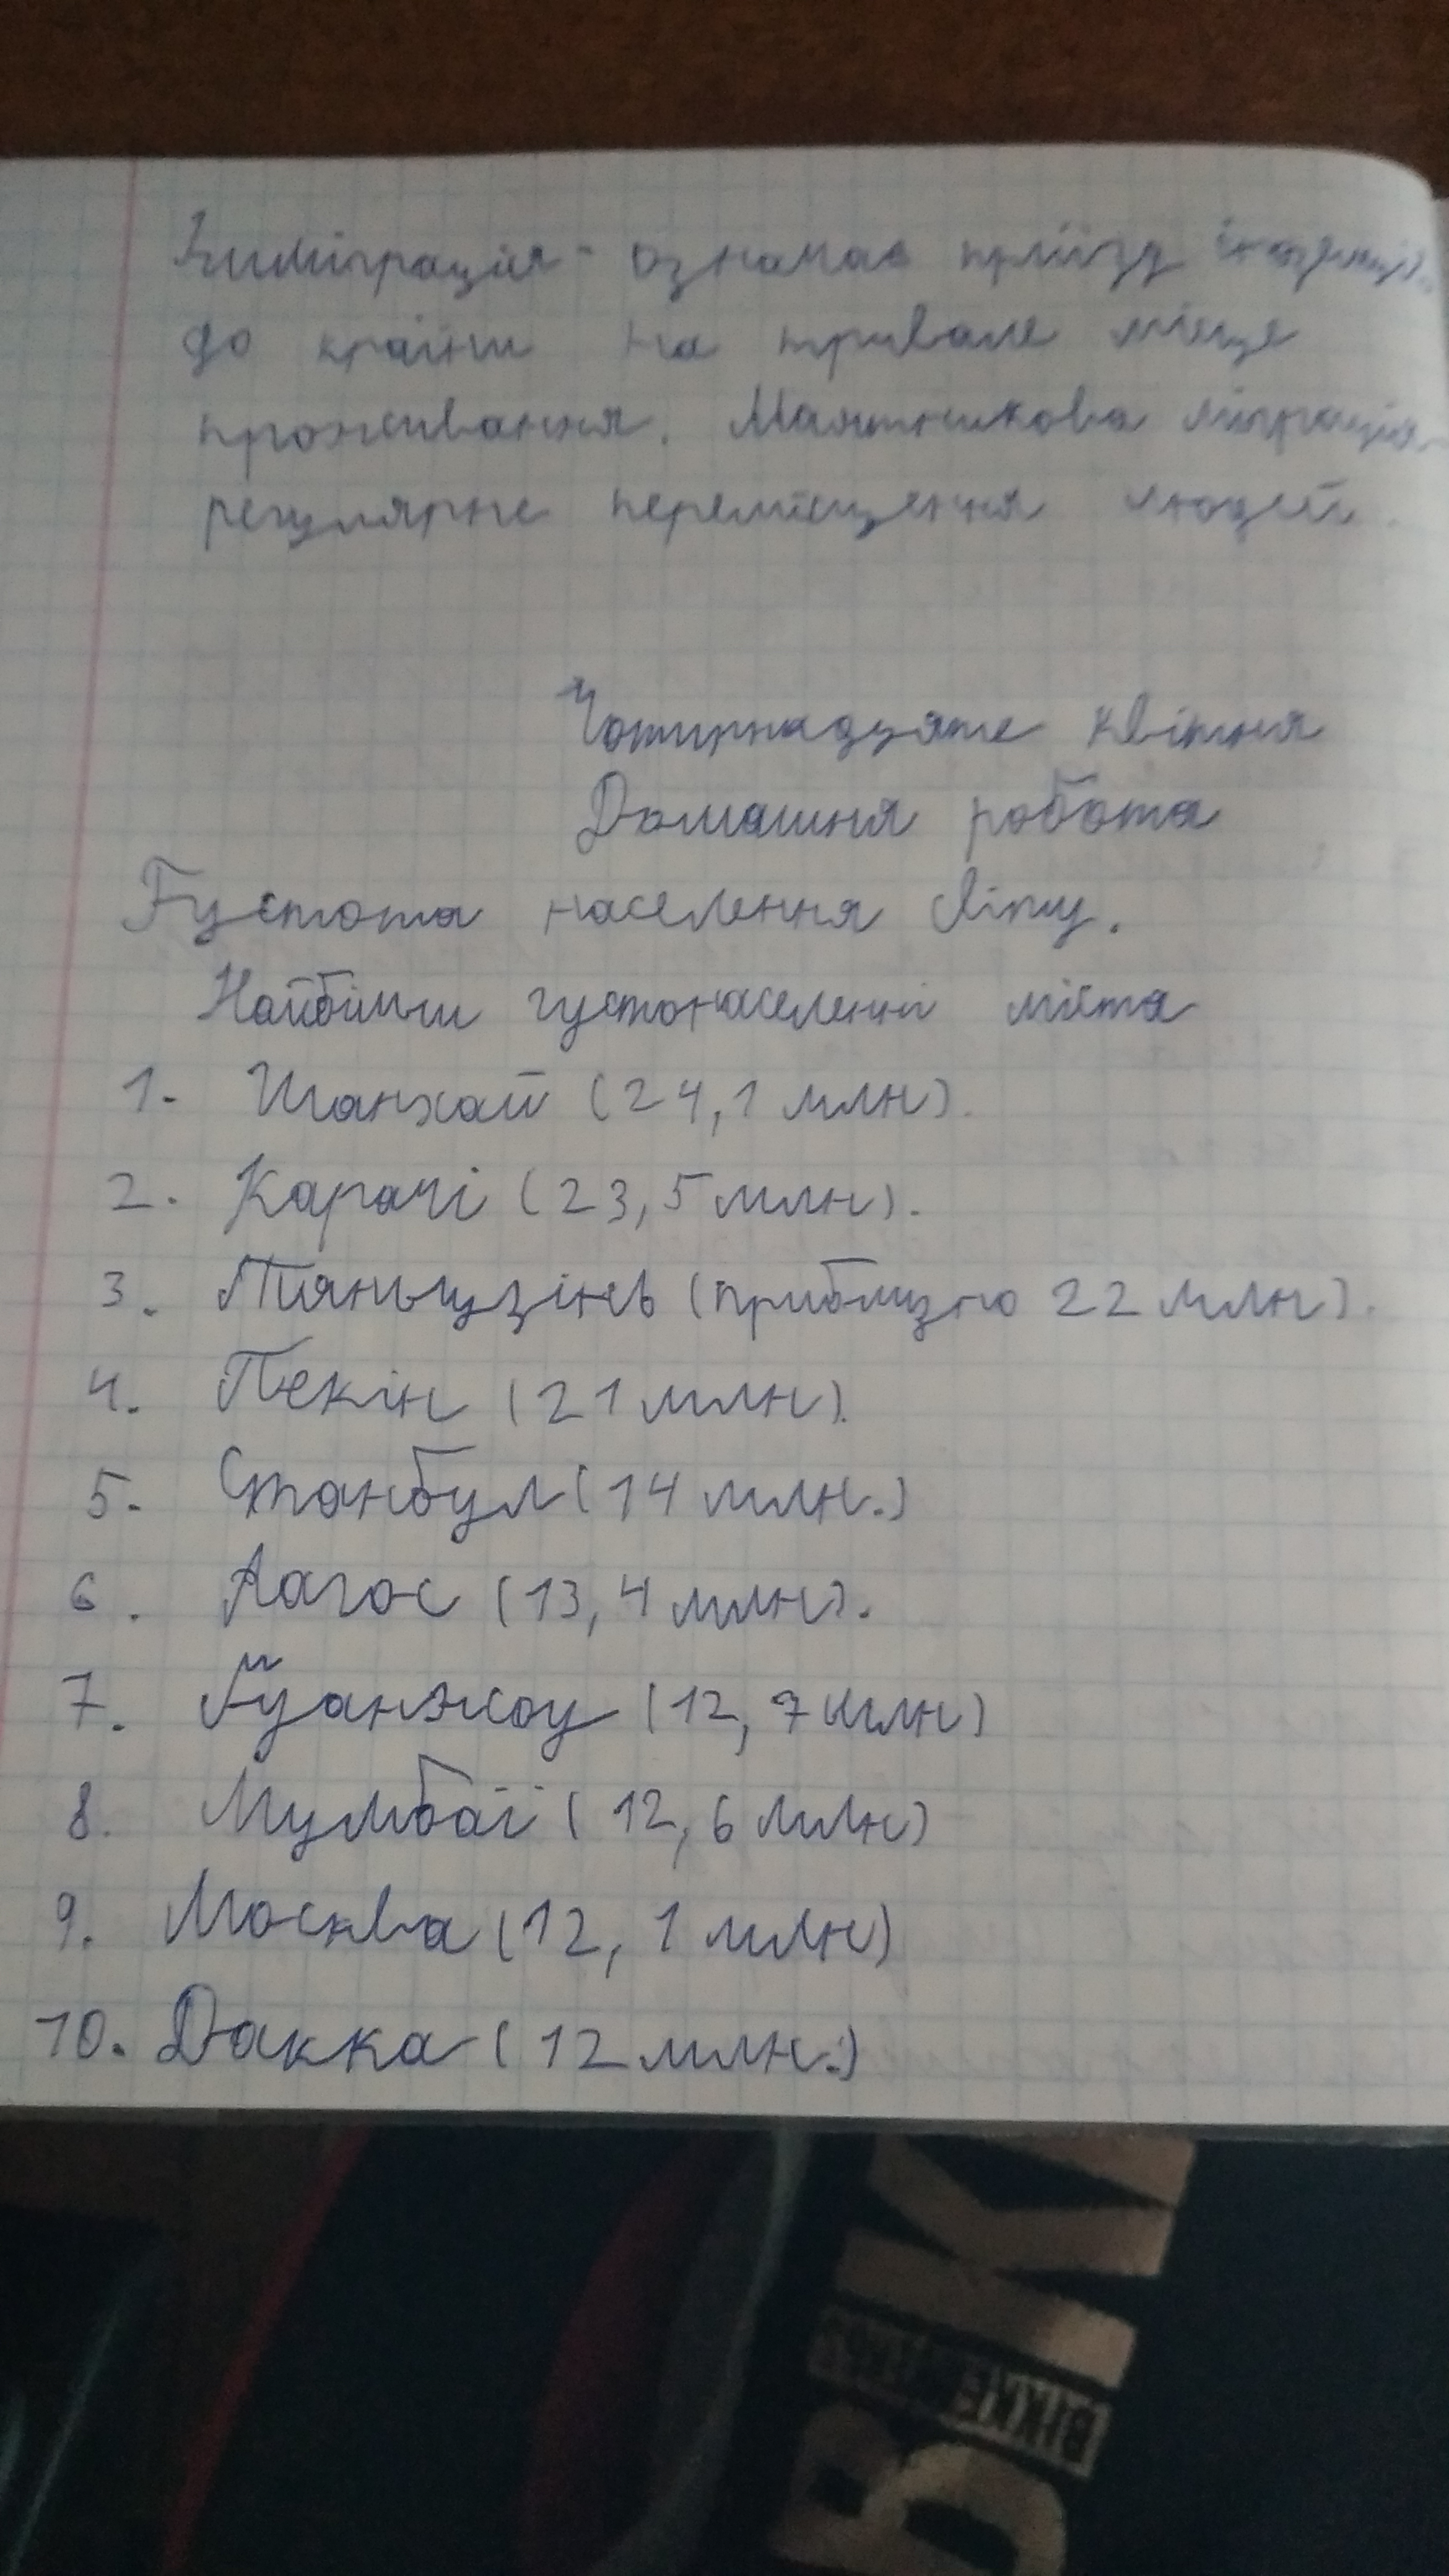 Імміграція - означає приїзд іноземців
до країни на тривале місце
проживання. Маятникова міграція
регулярне переміщення людей.
Чотирнадцяте квітня
Домашня робота
Густота населення світу.
Найбільш густонаселенні міста
1. Шанхай (24,1 млн).
2. Карачі (23,5 млн).
3. Тяньцзінь (приблизно 22 млн).
4. Пекін (21 млн).
5. Стамбул (14 млн.)
6. Лагос (13,4 млн).
7. Гуанжоу (12,7 млн)
8. Мумбаї (12,6 млн)
9. Москва (12,1 млн)
10. Дакка (12 млн.)
BIKKI